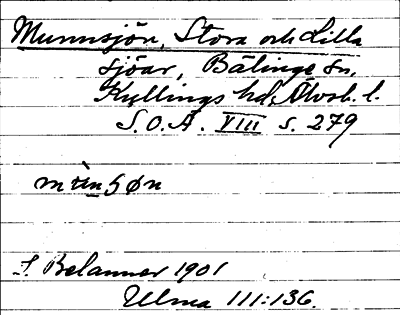 Munnsjön, Stora och Lilla
sjöar, Bälinge sn,
Kullings hd, Älvsb. l.
S.O.Ä. VIII s. 279
S Belanner 1901
Ulma 111:136.